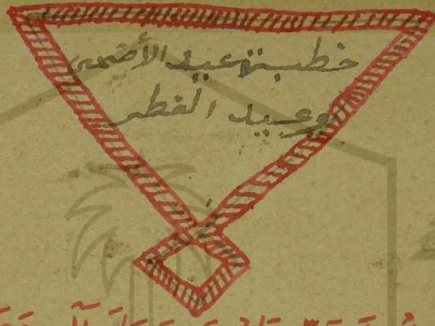 خطبة عيد الأضحى
وعيد الفطر